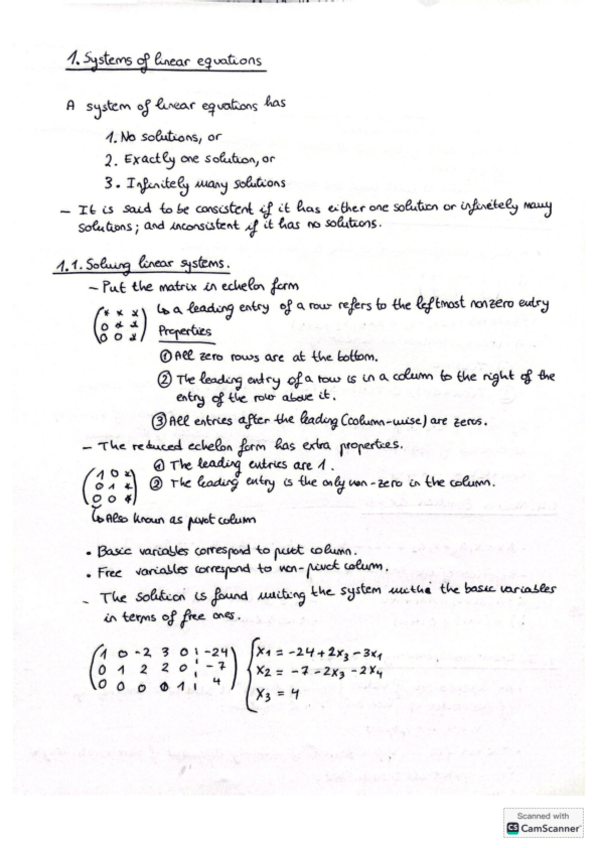 1. Systems of linear equations
A system of linear equations has
1. No solutions, or
2. Exactly one solution, or
3. Infinitely many solutions
– It is said to be consistent if it has either one solution or infinitely many
solutions; and inconsistent if it has no solutions.
1.1. Solving linear systems.
– Put the matrix in echelon form
↳ a leading entry of a row refers to the leftmost nonzero entry
(* * *
0 * *
0 0 *)
Properties
① All zero rows are at the bottom.
② The leading entry of a row is in a column to the right of the
entry of the row above it.
③ All entries after the leading (column-wise) are zeros.
– The reduced echelon form has extra properties.
(1 0 *
0 1 *
0 0 *)
④ The leading entries are 1.
⑤ The leading entry is the only non-zero in the column.
↳ Also known as pivot column
• Basic variables correspond to pivot column.
• Free variables correspond to non-pivot column.
– The solution is found writing the system the basic variables
in terms of free ones.
(1 0 -2 3 0 ¦ -24
0 1 2 2 0 ¦ -7
0 0 0 0 1 ¦ 4)
{x1 = -24 + 2x3 - 3x1
x2 = -7 - 2x3 - 2x4
x3 = 4
Scanned with
CS CamScanner